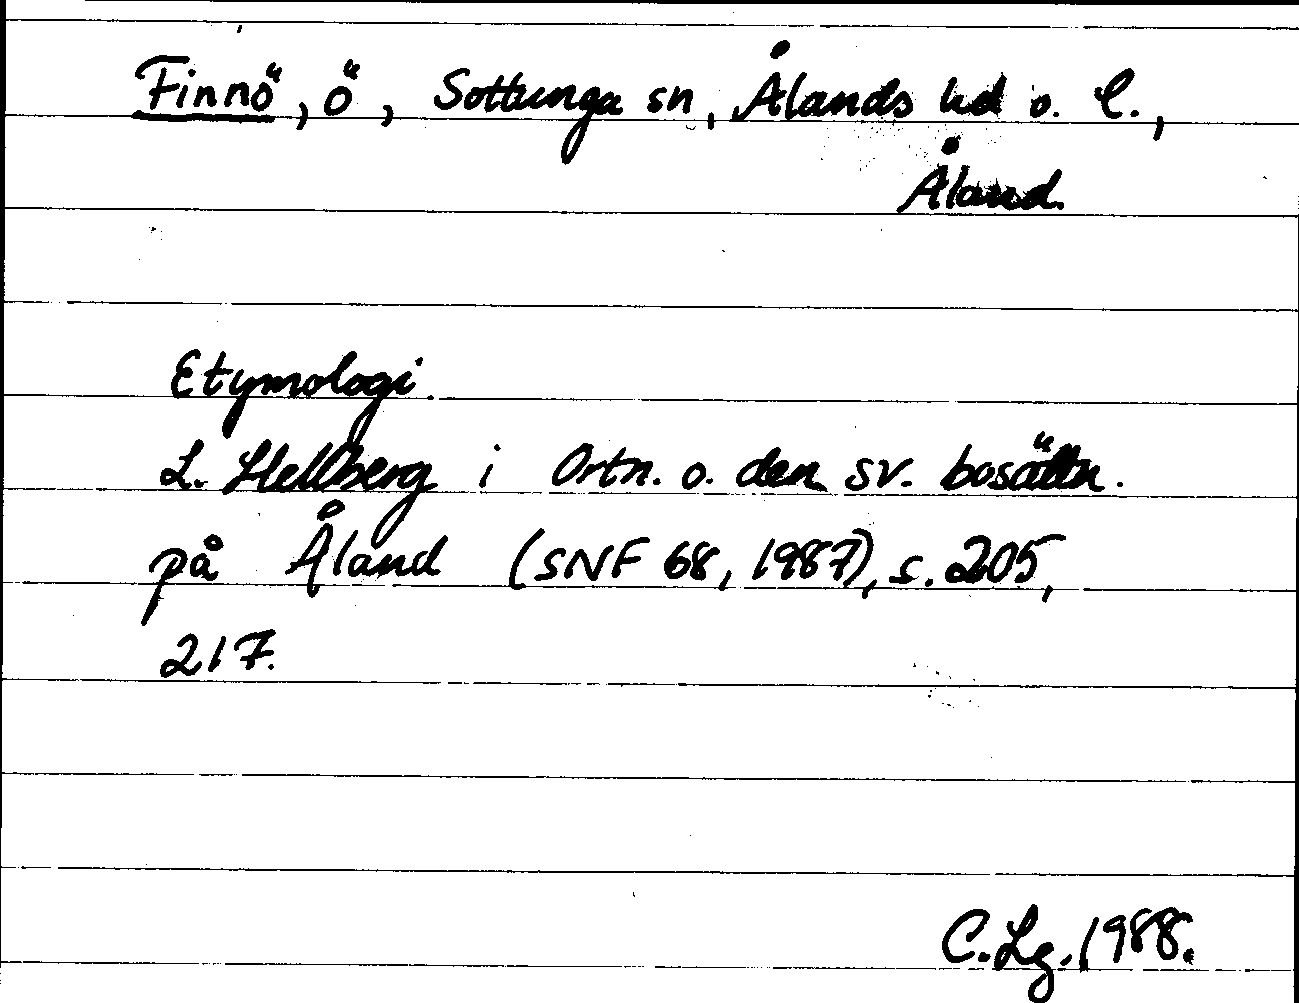 Finnö, ö, Sottunga sn, Ålands hd o. l.,
Åland.
Etymologi.
L. Hellberg i Ortn. o. den sv. bosättn.
på Åland (SNF 68, 1987), s. 205,
217.
C. Lg. 1988.